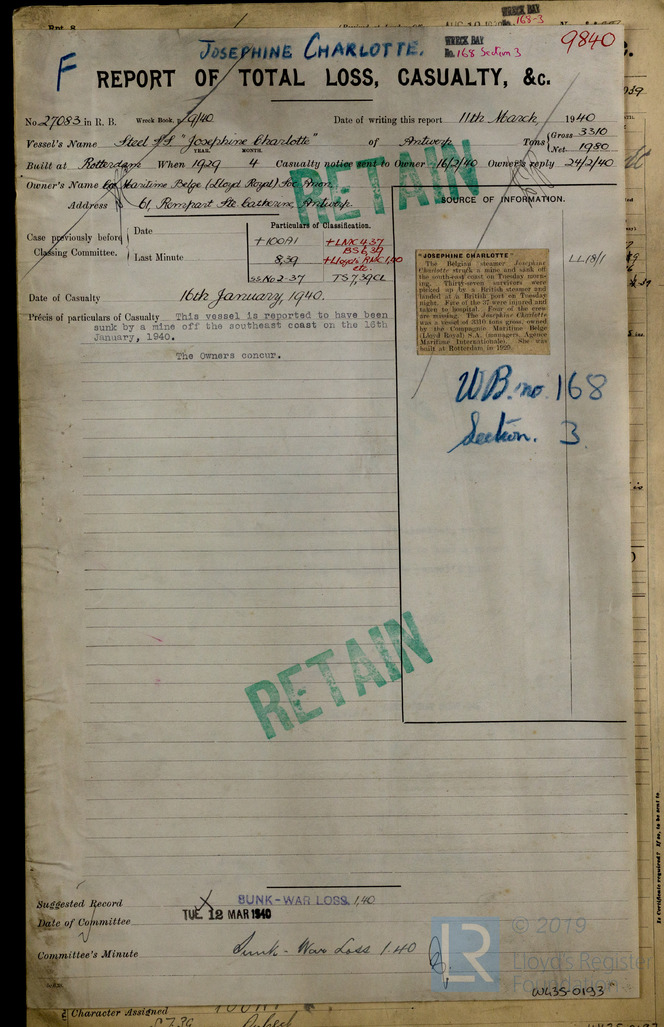 WRECK BAY
No. 168-3
JOSEPHINE CHARLOTTE.
WRECK BAY
No. 168 Section 3
9840
F
REPORT OF TOTAL LOSS, CASUALTY, &c.
No. 27083 in R. B. Wreck Book, p. 9/40 Date of writing this report 11th March 1940
Vessel's Name Steel SS "Josephine Charlotte" of Antwerp Tons Gross 3310
Net 1980
YEAR. MONTH.
Built at Rotterdam When 1929 4 Casualty notice sent to Owner 16/2/40 Owner's reply 24/2/40
Owner's Name Cie Maritime Belge (Lloyd Royal) Soc Anon.
Address 61, Rempart Ste Catherine, Antwerp.
RETAIN
SOURCE OF INFORMATION.
Particulars of Classification.
Case previously before Classing Committee.
Date
Last Minute
+100A1 +LMC 4,37
BS 6,39
8,39 +Lloyd's RMC 1,40
etc.
SS No 2-37 TS 7,39 CL
Date of Casualty 16th January, 1940.
Précis of particulars of Casualty This vessel is reported to have been
sunk by a mine off the southeast coast on the 16th
January, 1940.
The Owners concur.
"JOSEPHINE CHARLOTTE"
The Belgian steamer Josephine
Charlotte struck a mine and sank off
the south-east coast on Tuesday morn-
ing. Thirty-seven survivors were
picked up by a British steamer and
landed at a British port on Tuesday
night. Five of the 37 were injured and
taken to hospital. Four of the crew
are missing. The Josephine Charlotte
was a vessel of 3310 tons gross, owned
by the Compagnie Maritime Belge
(Lloyd Royal) S.A. (managers, Agence
Maritime Internationale). She was
built at Rotterdam in 1929.
LL18/1
WB. no. 168
Section. 3
RETAIN
Suggested Record SUNK-WAR LOSS 1,40
Date of Committee TUE. 12 MAR 1940
Committee's Minute Sunk - War Loss 1.40
LR
© 2019
Lloyd's Register
Foundation
W435-0193
Is Certificate required? If so, to be sent to
Character Assigned 100A1